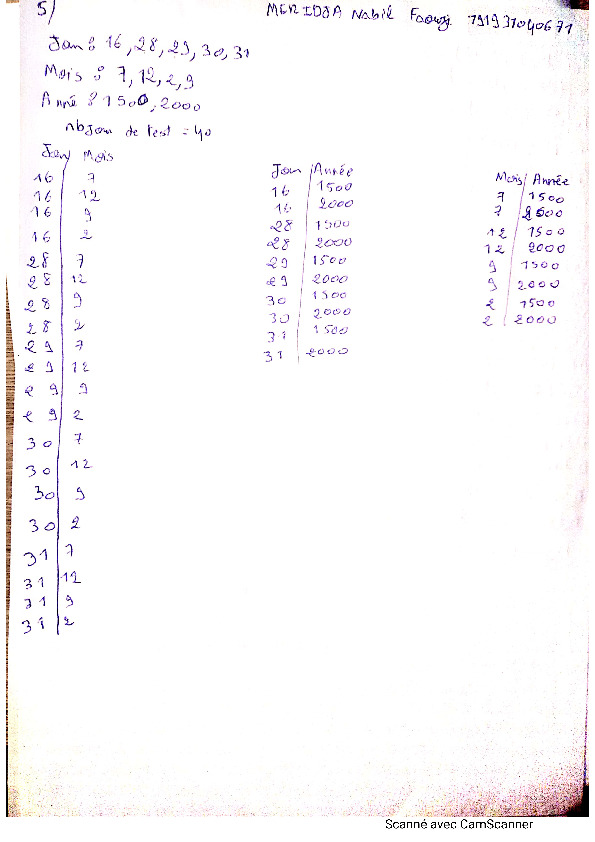 5/
MERIDJA Nabil Faouzi 191937040671
Jour : 16, 28, 29, 30, 31
Mois : 7, 12, 2, 9
Année : 1500, 2000
nb Jour de test = 40
Jour Mois
16 7
16 12
16 9
16 2
28 7
28 12
28 9
28 2
29 7
29 12
29 9
29 2
30 7
30 12
30 9
30 2
31 7
31 12
31 9
31 2
Jour Année
16 1500
16 2000
28 1500
28 2000
29 1500
29 2000
30 1500
30 2000
31 1500
31 2000
Mois Année
7 1500
7 2000
12 1500
12 2000
9 1500
9 2000
2 1500
2 2000
Scanné avec CamScanner